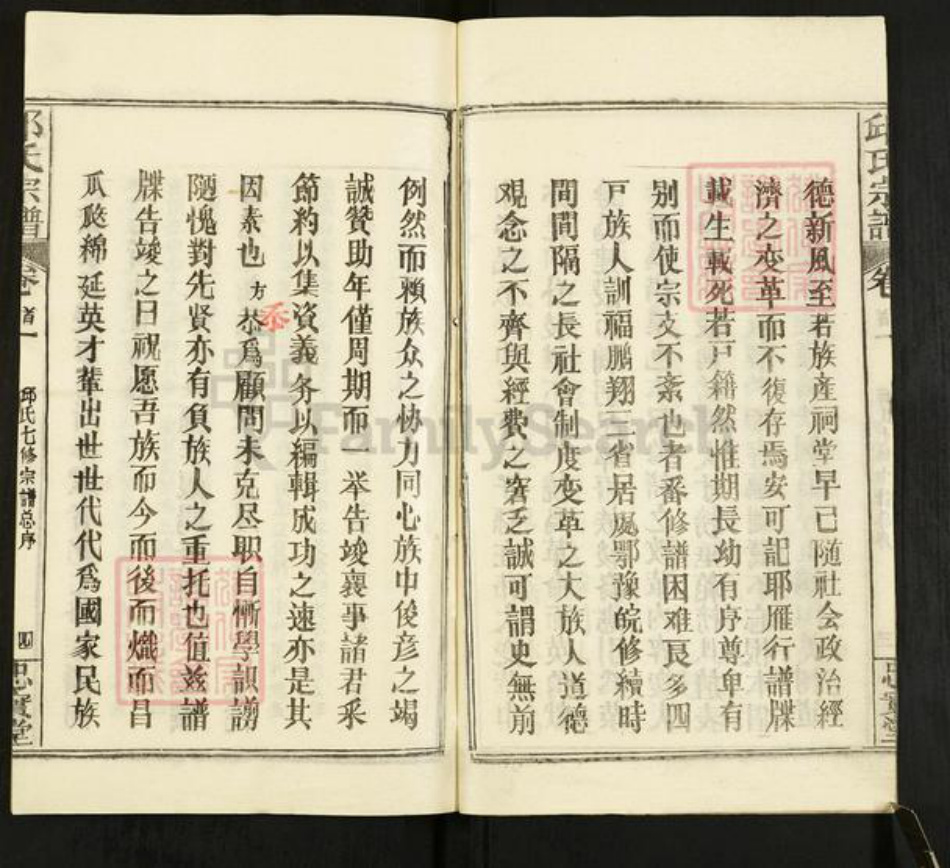 邱氏宗譜
卷
德新風至若族產祠堂早已隨社会政治經
濟之变革而不復存焉安可記耶雁行譜牒
載生載死若戸籍然惟期長幼有序尊卑有
别而使宗支不紊也者番修譜困难良多四
戸族人訓福鹏翔三省居處鄂豫皖修續時
間間隔之長社會制度变革之大族人道德
观念之不齊與經費之窘乏誠可謂史無前
例然而賴族众之协力同心族中俊彦之竭
誠贊助年僅周期而一举告竣襄事諸君采
節約以集資義务以編輯成功之速亦是其
因素也方忝恭爲顧問未克尽职自慚學識謭
陋愧對先賢亦有負族人之重托也值兹譜
牒告竣之日祝愿吾族而今而後而熾而昌
瓜瓞綿延英才輩出世世代代爲國家民族
邱氏宗譜
卷首一
邱氏七修宗譜总序
四
忠實堂
FamilySearch